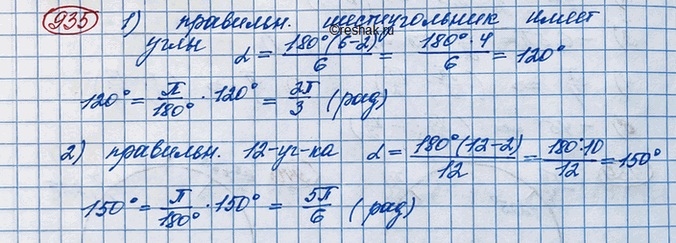 935 1) правильн. шестиугольник имеет
©reshak.ru
углы α = 180°(6-2)/6 = 180°·4/6 = 120°
120° = π/180° · 120° = 2π/3 (рад)
2) правильн. 12-уг-ка α = 180°(12-2)/12 = 180·10/12 = 150°
150° = π/180° · 150° = 5π/6 (рад)